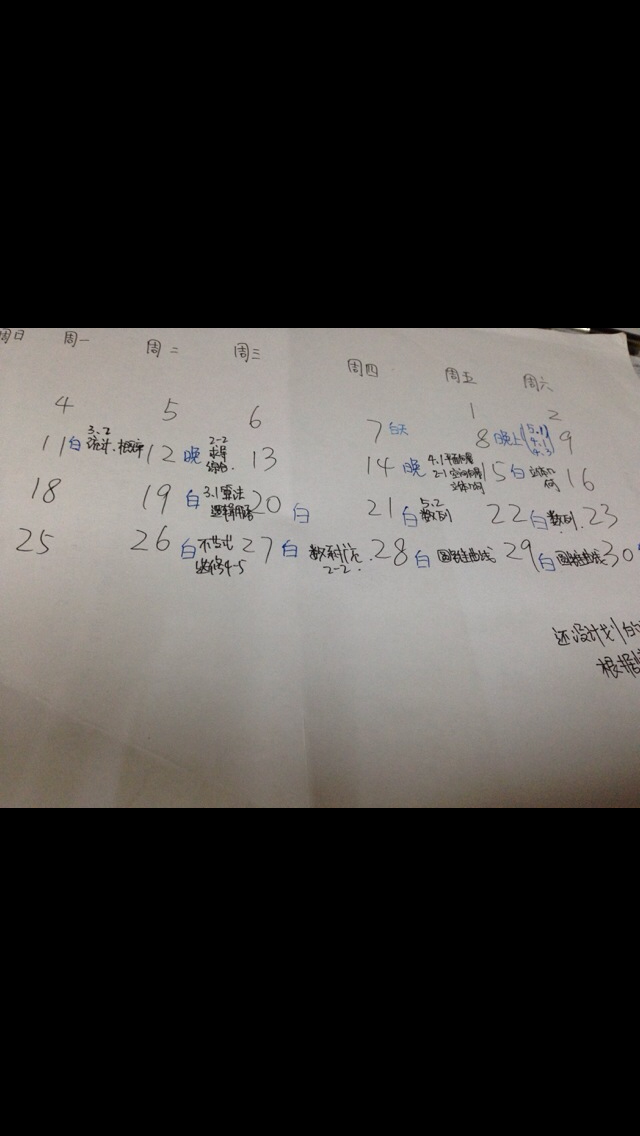 周日 周一 周二 周三 周四 周五 周六
4 5 6 7 白天 1 2
11 白 3.2 统计、概率 12 晚 2-2 求导 13 14 晚 4.1 平面向量 2-1 空间向量 立体几何 8 晚上 5.1 4.1 4.3 9
18 19 白 3.1 算法 逻辑用语 20 白 21 白 5.2 数列 15 白 立体几何 16
25 26 白 不等式 选修4-5 27 白 数列 2-2 28 白 圆锥曲线 22 白 数列 23
29 白 圆锥曲线 30
还没计划的
根据